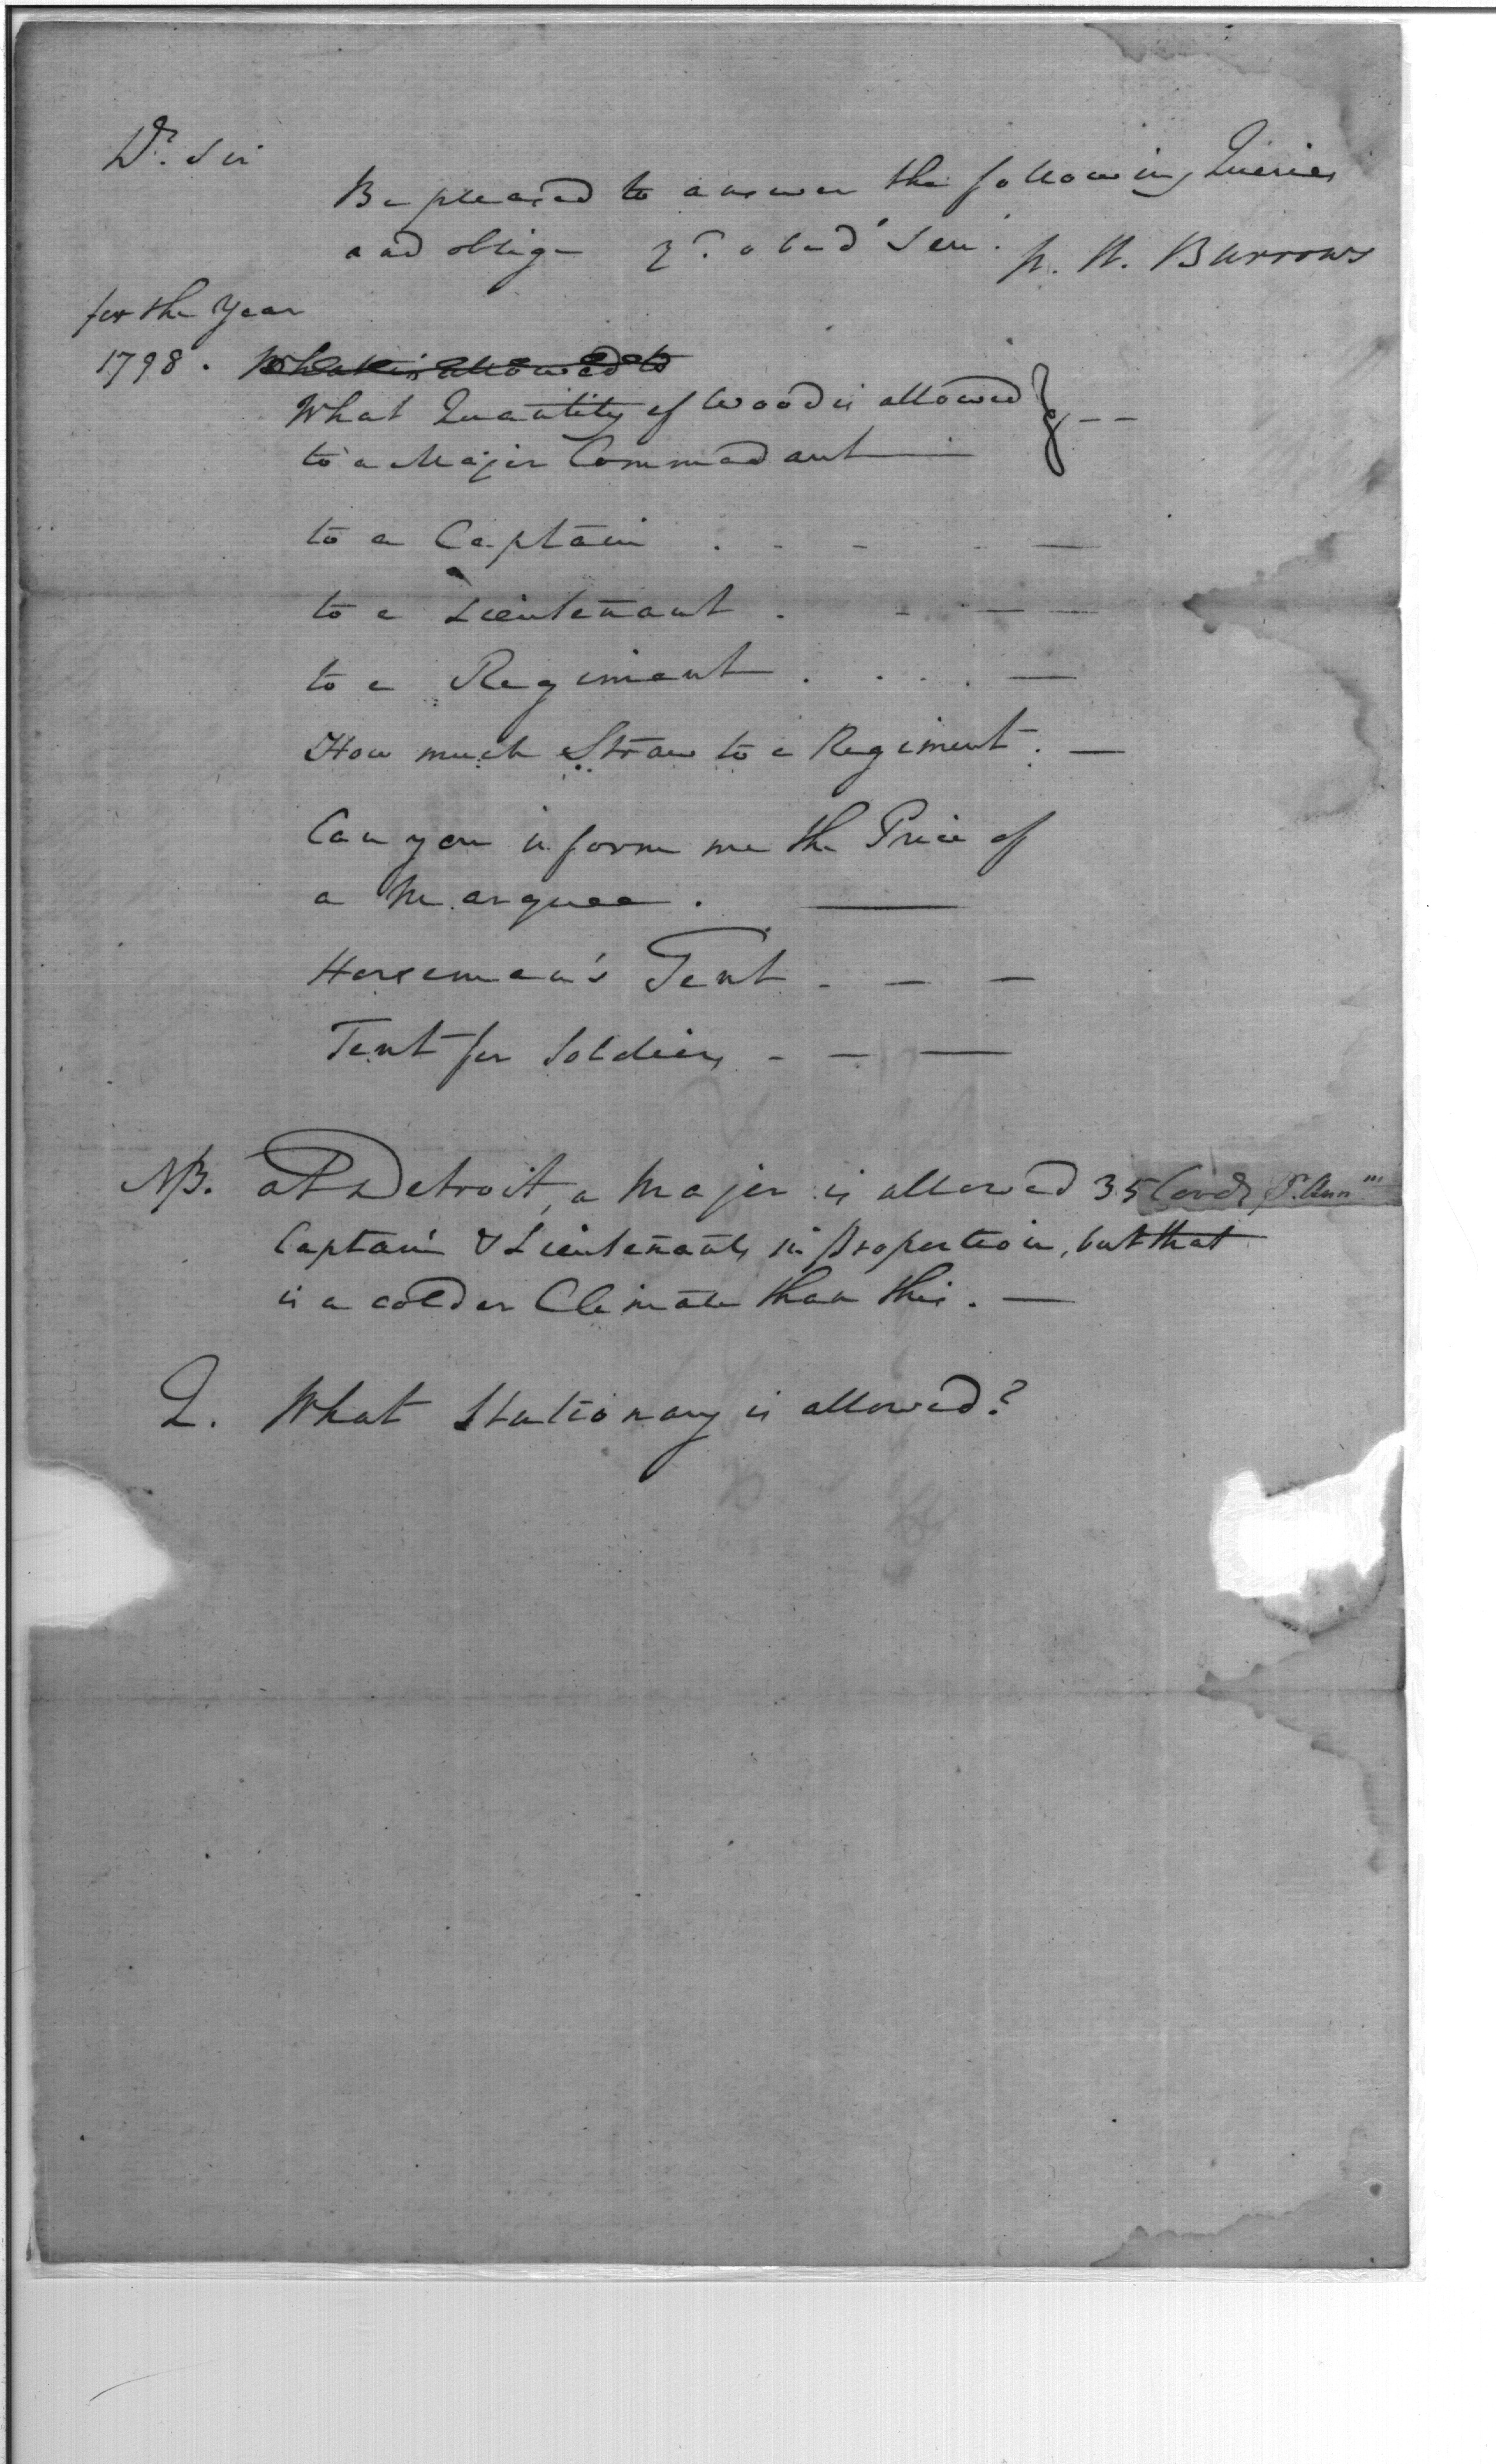 Dr. Sir
Be pleased to answer the following Queries
and oblige yr. obed' Serv. W. W. Burrows
for the Year
1798. What is allowed to
What Quantity of Wood is allowed
to a Major Commadant
to a Captain . - - - —
to a Lieutenant . - — —
to a Regiment . . . . —
How much Straw to a Regiment . —
Can you inform me the Price of
a Marquee . —
Horseman's Tent . — —
Tent for Soldiers - — —
NB. at Detroit, a Major is allowed 35 Cords P. Ann'''
Captain & Lieutenants in proportion, but that
is a colder Climate than this . —
Q. What Stationary is allowed?